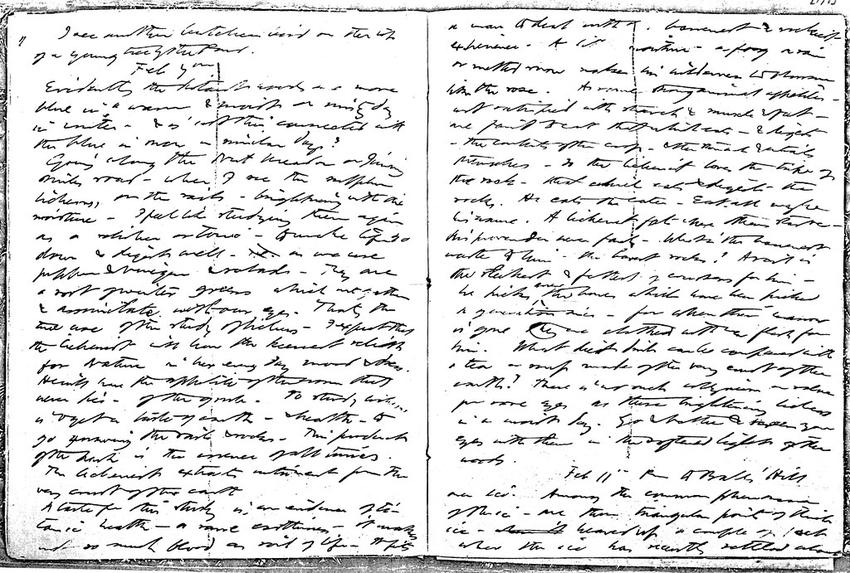 I see another butcher bird on the top
of a young tree by the Pond.
Feb 7th
Evidently the distant woods are more
blue in a warm & moist or misty day
in winter - & is not this connected with
the blue in snow in similar days?
Going along the Nut Meadow or Jimmy
Miles road - when I see the sulphur
lichens, on the rails - brightening with the
moisture - I feel like studying them again
as a relisher or tonic - to make life go
down & digest well - as we use
pepper & vinegar & salads - They are
a sort of winter greens which we gather
& assimilate with our eyes. That's the
true use of the study of lichens - I expect that
the lichenist will have the keenest relish
for Nature in her every day mood & dress.
He will have the appetite of the worm that
never dies - of the grub - To study lichens,
is to get a taste of earth - & health - to
go gnawing the rails & rocks - This product
of the bark is the essence of all times.
The lichenist extracts nutriment from the
very crust of the earth
A taste for this study is an evidence of ti-
tanic health - a rare earthiness - It makes
not so much blood as soil of life - It fits
a man to deal with the barrenest & rockiest
experience. A little moisture - a fog or rain
or melted snow makes his wilderness to blossom
like the rose. As some strong animal appetites -
not satisfied with starch & muscle & fat -
are fain to eat that which eats - & digests
- the contents of the crop - & the stomach & entrails
themselves - so the lichenist loves the tripe of
the rock - that which eats & digests the
rocks. He eats the eater - Eat-all may be
his name. A lichenist fats where others starve -
His provender never fails - What is the barrenest
waste to him - the barest rocks? A rail is
the sleekest & fattest of coursers for him -
He picks anew the bones which have been picked
a generation since - for when their marrow
is gone they are clothed with new flesh for
him. What diet drink can be compared with
a tea or soup made of the very crust of the
earth? There is no such collyrium or salve
for sore eyes as these brightening lichens
in a moist day. Go & bathe & screen your
eyes with them in the softened light of the
woods.
Feb 11th Pm to Ball's Hill
over ice. Among the common phenomena
of the ice - are those triangular points of thick
ice - heaved up a couple of feet
where the ice has recently settled about